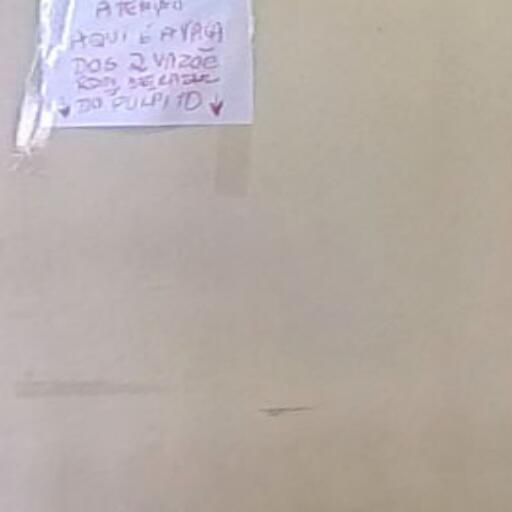 ATENÇÃO
AQUI É A VAGA
DOS 2 VAZOẼ
DO PULPITO